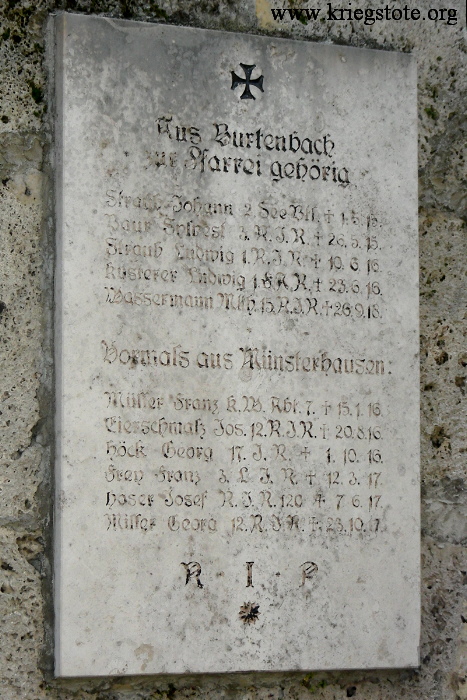 www.kriegstote.org
Aus Burtenbach
zur Pfarrei gehörig
Johann 2. See Btl. † 1.5.15.
Baur Sylvest 3. R. I. R. † 26.5.15.
Straub Ludwig 1. R. I. R. † 10.6.16.
Küsterer Ludwig 1. F. A. R. † 23.6.16.
Wassermann Mth. 15. R. I. R. † 26.9.18.
Vormals aus Münsterhausen:
Müller Franz K. W. Abt. 7. † 15.1.16.
Eierschmalz Jos. 12. R. I. R. † 20.8.16.
Höck Georg 17. I. R. † 1.10.16.
Frey Franz 3. L. I. R. † 12.3.17.
Hoser Josef R. I. R. 120 † 7.6.17.
Miller Georg 12. R. I. R. † 23.10.17.
R I P